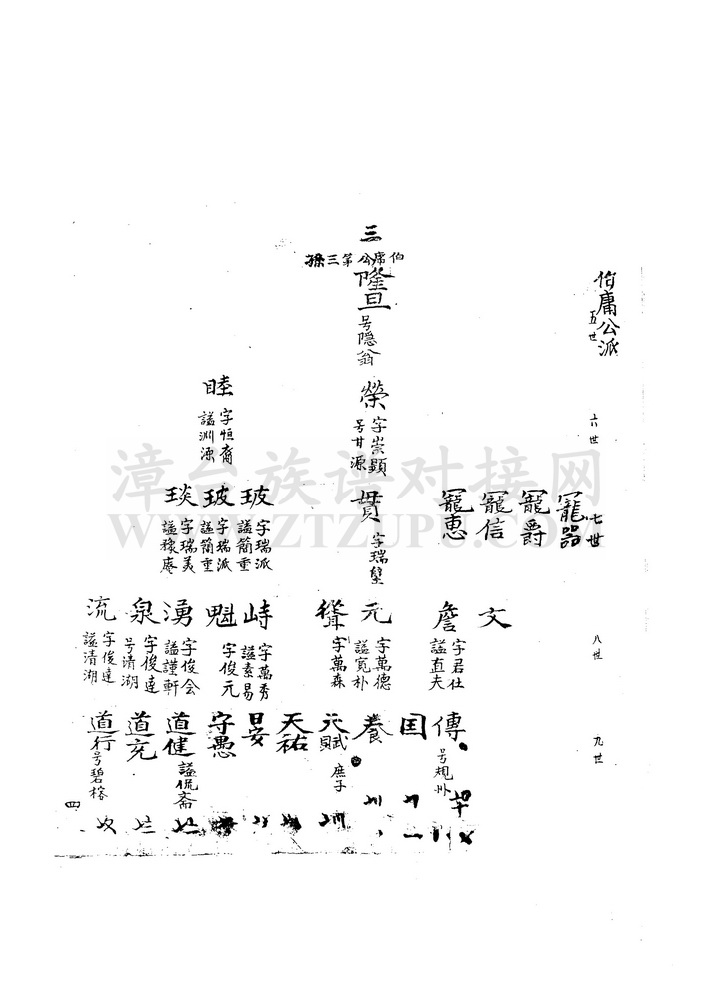 伯庸公派
五世
三
伯庸公第三孫
隆旦
号隱翁
六世
榮
字崇顯
号甘源
睦
字恒裔
謚淵源
七世
寵器
寵爵
寵信
寵惠
貫
字瑞
玻
字瑞派
謚簡重
玻
字瑞派
謚簡重
琰
字瑞美
謚稼庵
八世
文
詹
字君仕
謚直夫
元
字萬德
謚寬朴
聳
字萬森
峙
字萬秀
謚素易
魁
字俊元
湧
字俊会
謚謹軒
泉
字俊達
号清湖
流
字俊達
謚清湖
九世
傳
号規
国
養
元賦
庶子
天祐
日安
守愚
道健
謚侃斋
道充
道行
号碧榕
四
漳台族谱对接网
WWW.ZTZUPU.COM